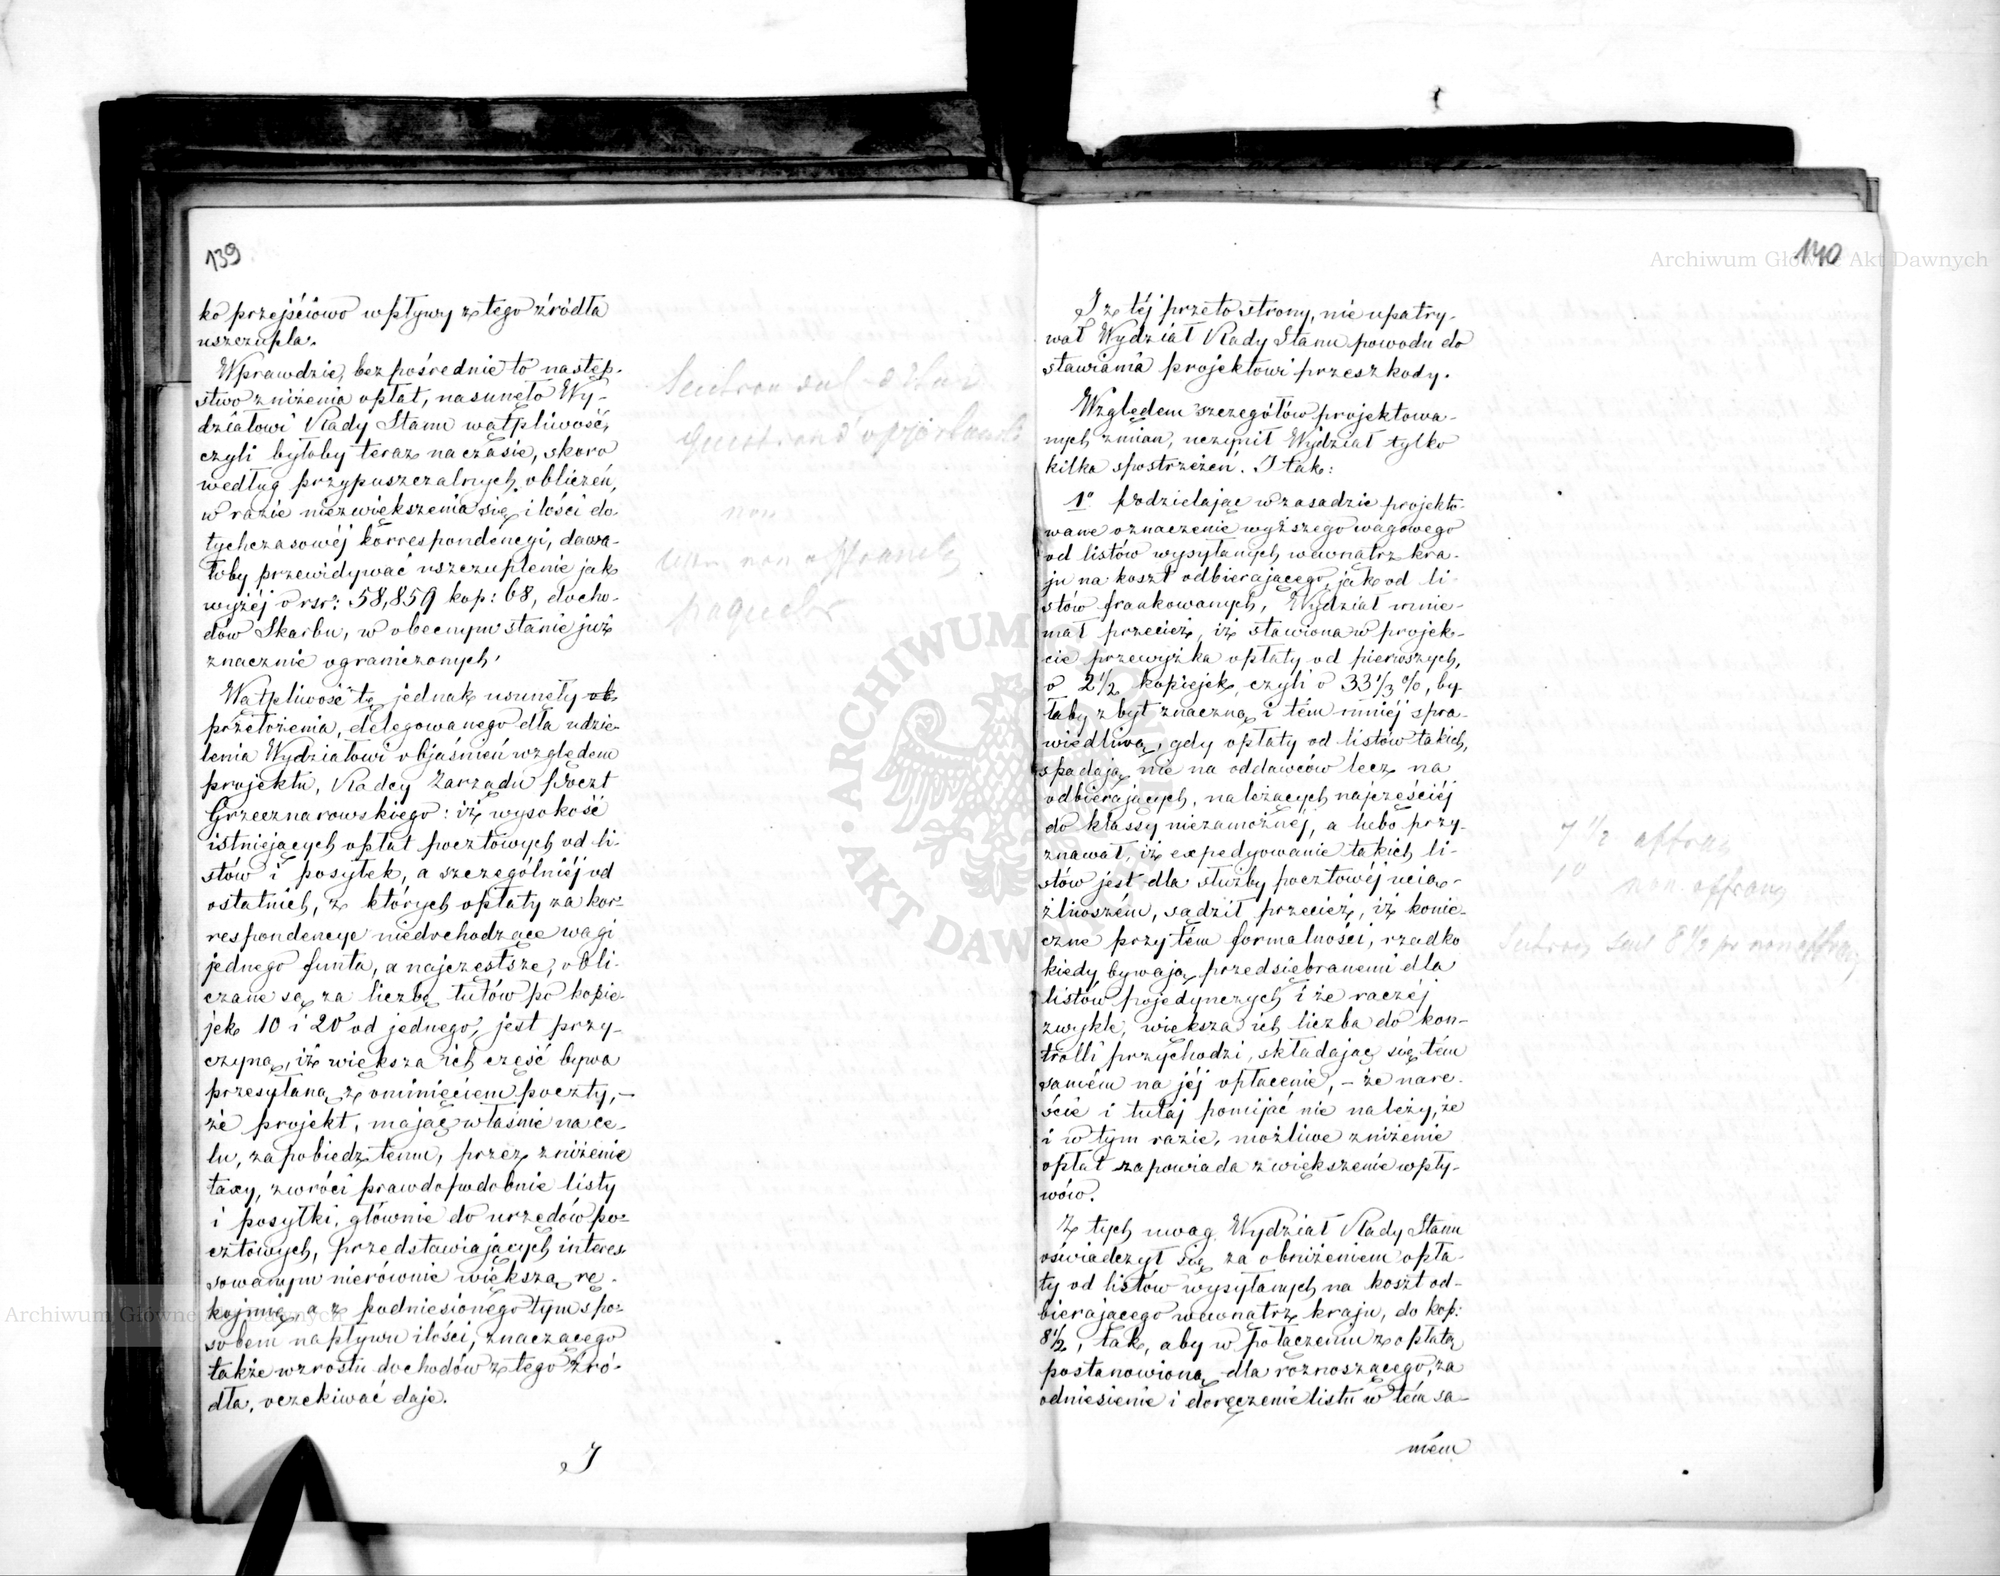 139
ko przejściowo wpływy z tego źródła
uszczupla.
Wprawdzie, bezpośrednie to następ-
stwo zniżenia opłat, nasunęło Wy-
działowi Rady Stanu wątpliwość,
czyli byłoby teraz na czasie, skoro
według przypuszczalnych obliczeń,
w razie niezwiększenia się ilości do-
tychczasowéj korrespondencyi, dawa-
łoby przewidywać uszczuplenie jak
wyżéj o rsr: 58,859 kop: 68, docho-
dów Skarbu, w obecnym stanie już
znacznie ograniczonych.
Wątpliwość tę jednak usunęły ob
przełożenia, delegowanego dla udzie-
lenia Wydziałowi objaśnień względem
projektu, Radcy Zarządu Poczt
Grzecznarowskiego: iż wysokość
istniejących opłat pocztowych od li-
stów i posyłek, a szczególniéj od
ostatnich, z których opłaty za kor-
respondencye niedochodzące wagi
jednego funta, a najczęstsze, obli-
czane są za liczbę łutów po kopie-
jek 10 i 20 od jednego, jest przy-
czyną, iż większa ich część bywa
przesyłaną z ominięciem poczty, –
że projekt, mając właśnie na ce-
lu, zapobiedz temu, przez zniżenie
taxy, zwróci prawdopodobnie listy
i posyłki, głównie do urzędów po-
cztowych, przedstawiających interes-
sowanym nierównie większą rę-
kojmię, a z podniesionego tym spo-
sobem napływu ilości, znaczącego
także wzrostu dochodów z tego źró-
dła, oczekiwać daje.
I
non
140
I z téj przeto strony, nie upatry-
wał Wydział Rady Stanu powodu do
stawiania projektowi przeszkody.
Względem szczegółów projektowa-
nych zmian, uczynił Wydział tylko
kilka spostrzeżeń. I tak:
1º Podzielając w zasadzie projekto-
wane oznaczenie wyższego wagowego
od listów wysyłanych wewnątrz kra-
ju na koszt odbierającego, jak od li-
stów frankowanych, Wydział mnie-
mał przecież, iż stawiona w projek-
cie przewyżka opłaty od pierwszych,
o 2½ kopiejek, czyli o 33⅓ %, by-
łaby zbyt znaczną i tém mniéj spra-
wiedliwą, gdy opłaty od listów takich,
spadają nie na oddawców lecz na
odbierających, należących najczęściéj
do klassy niezamożnéj, a lubo przy-
znawał, iż expedyowanie takich li-
stów jest dla służby pocztowéj ucią-
żliwszém, sądził przecież, iż konie-
czne przy tém formalności, rzadko
kiedy bywają przedsiębranemi dla
listów pojedynczych i że raczéj
zwykle, większa ich liczba do kon-
trolli przychodzi, składając się tém
samém na jéj opłacenie, – że nare-
ście i tutaj pomijać nie należy, że
i w tym razie, możliwe zniżenie
opłat zapowiada zwiększenie wpły-
wów.
Z tych uwag, Wydział Rady Stanu
oświadczył się za obniżeniem opła-
ty od listów wysyłanych na koszt od-
bierającego wewnątrz kraju, do kop:
8½, tak, aby w połączeniu z opłatą
postanowioną dla roznoszącego, za
odniesienie i doręczenie listu w tém sa-
mém
7 ½ affran
10 non affran
8 ½ pr non affran
Archiwum Główne Akt Dawnych
Archiwum Główne Akt Dawnych
ARCHIWUM GŁÓWNE AKT DAWNYCH